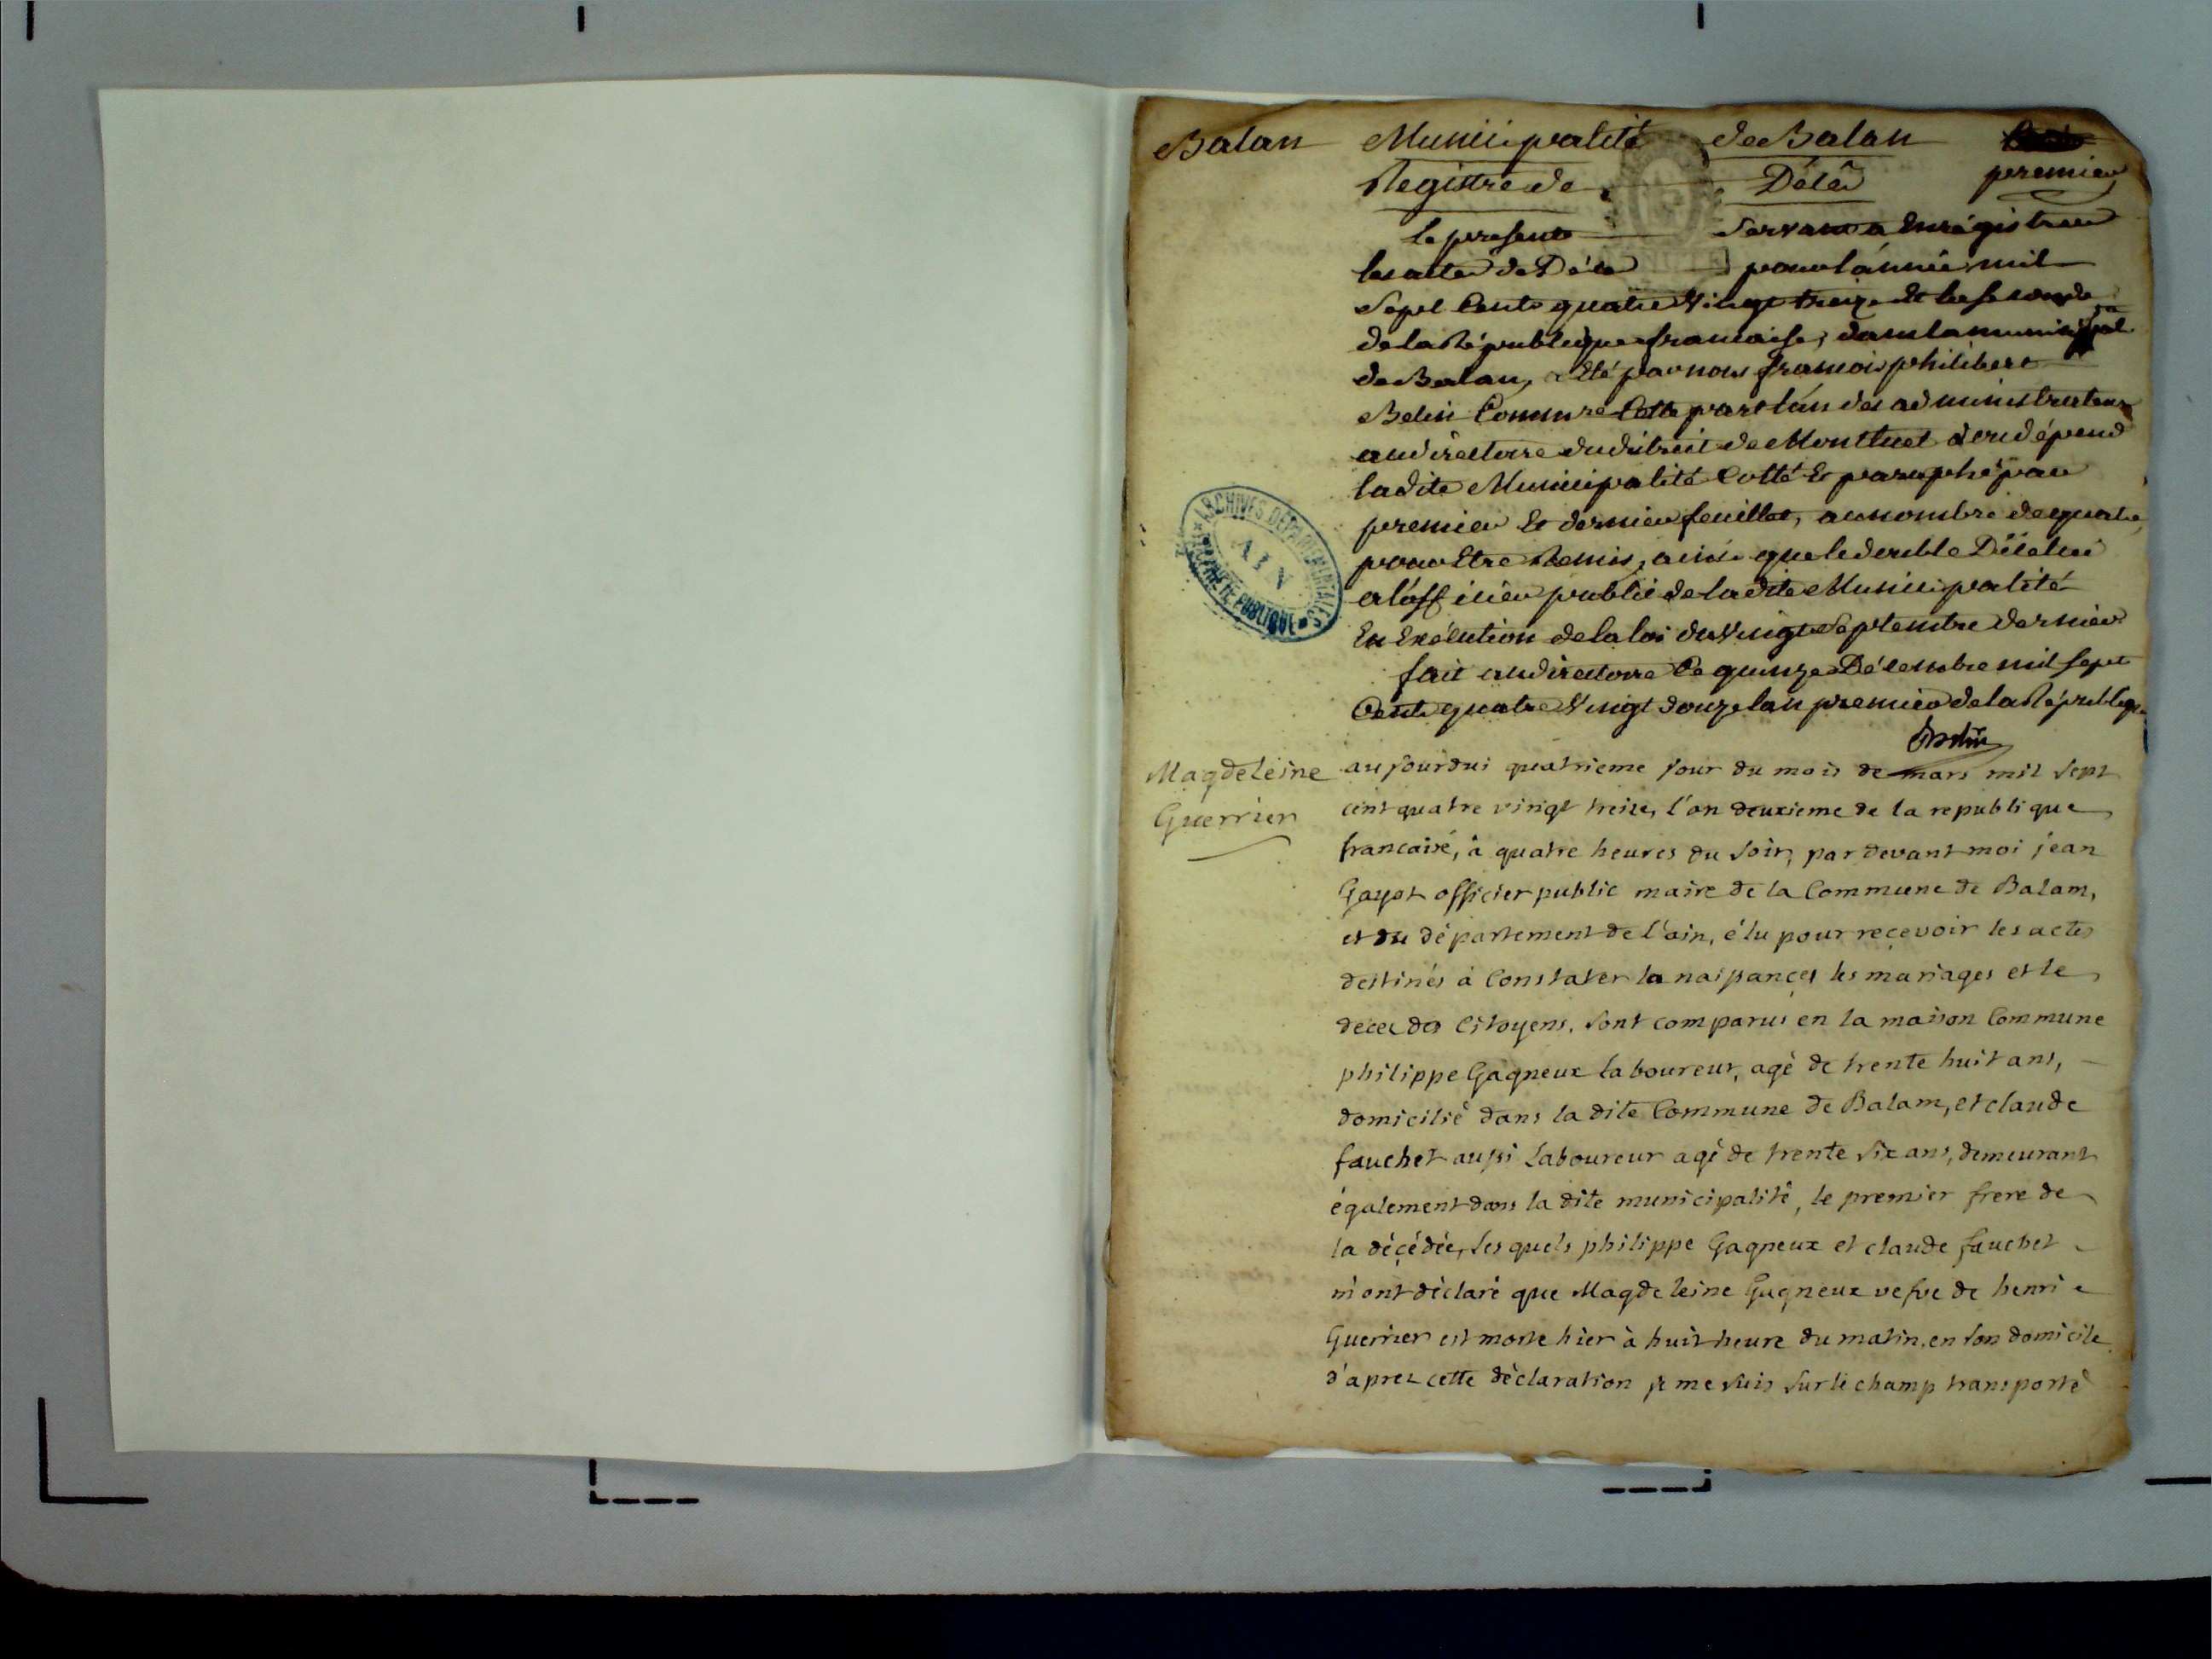 Balan Municipalité de Balan
Registre de Décés premier
le présent Servant a Enrégistrer
les actes de Décès pour l'année mil
Sept Cents quatre Vingt treize et la seconde
de la République francaise, dans la municipalité
de Balan, a Eté par nous francois philibert
Belin Commre Cette part l'un des administrateurs
au directoire du district de Montluel d'ou dépend
ladite Municipalité Cotté Et paraphé par
premier Et dernier feuillet, au nombre de quatre
pour Etre Remis, ainsi que le double D'icelui
a l'officier public de ladite Municipalité
En Exécution de la loi du Vingt Septembre dernier
fait au directoire Ce quinze Décembre mil sept
Cents quatre Vingt douze lan premier de la République
Belin
ARCHIVES DÉPARTEMENTALES
AIN
PROPRIÉTÉ PUBLIQUE
Magdeleine
Guerrier
aujourdui quatrieme jour du mois de mars mil sept
cent quatre vingt treize, l'an deuxieme de la republique
francaise, à quatre heures du soir, par devant moi jean
Gayot officier public maire de la Commune de Balam,
et du département de l'ain, élu pour reçevoir les actes
destinés à Constater la naissances les mariages et le
deces des Citoyens, sont comparus en la maison Commune
philippe Gagneux laboureur, agé de trente huit ans,
domicilié dans la dite Commune de Balam, et claude
fauchet aussi Laboureur agé de trente six ans, demeurant
également dans la dite municipalité, le premier frere de
la déçédée, les quels philippe Gagneux et claude fauchet
m'ont déclaré que Magdeleine Gagneux vefve de henri
Guerrier est morte hier à huit heure du matin, en son domicile
d'apres cette déclaration je me suis sur le champ transporté